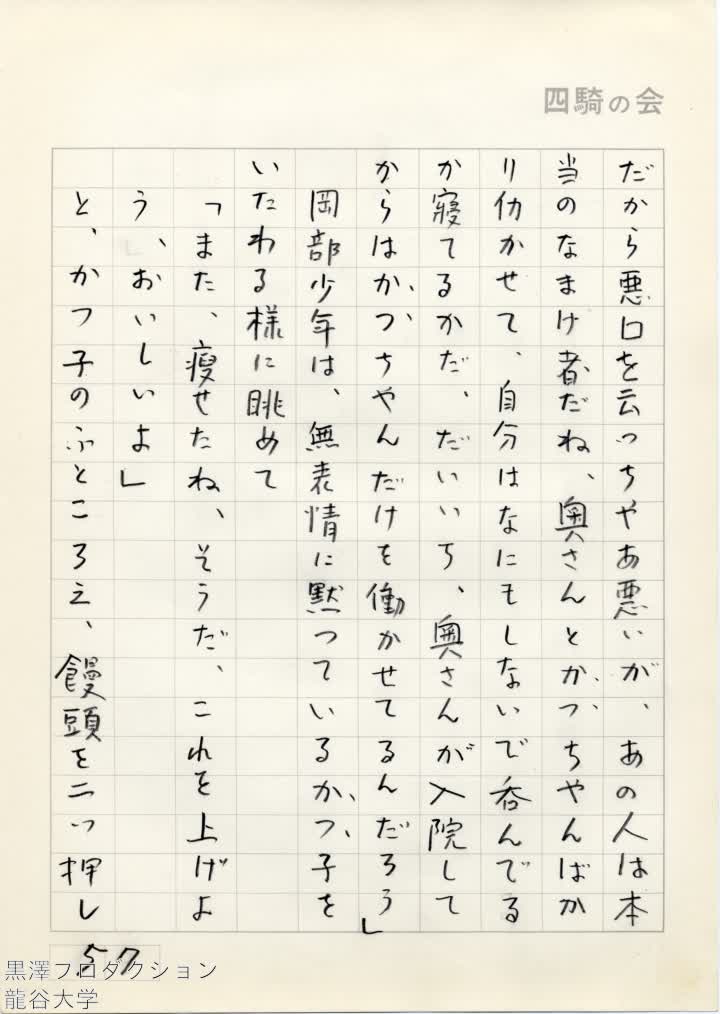 四騎の会
だから悪口を云っちゃあ悪いが、あの人は本
当のなまけ者だね、奥さんとかつちゃんばか
り仂かせて、自分はなにもしないで呑んでる
か寝てるかだ、だいいち、奥さんが入院して
からはかつちゃんだけを働かせてるんだろう」
岡部少年は、無表情に黙っているかつ子を
いたわる様に眺めて
「また、痩せたね、そうだ、これを上げよ
う、おいしいよ」
と、かつ子のふところえ、饅頭を二つ押し
57
黒澤プロダクション
龍谷大学